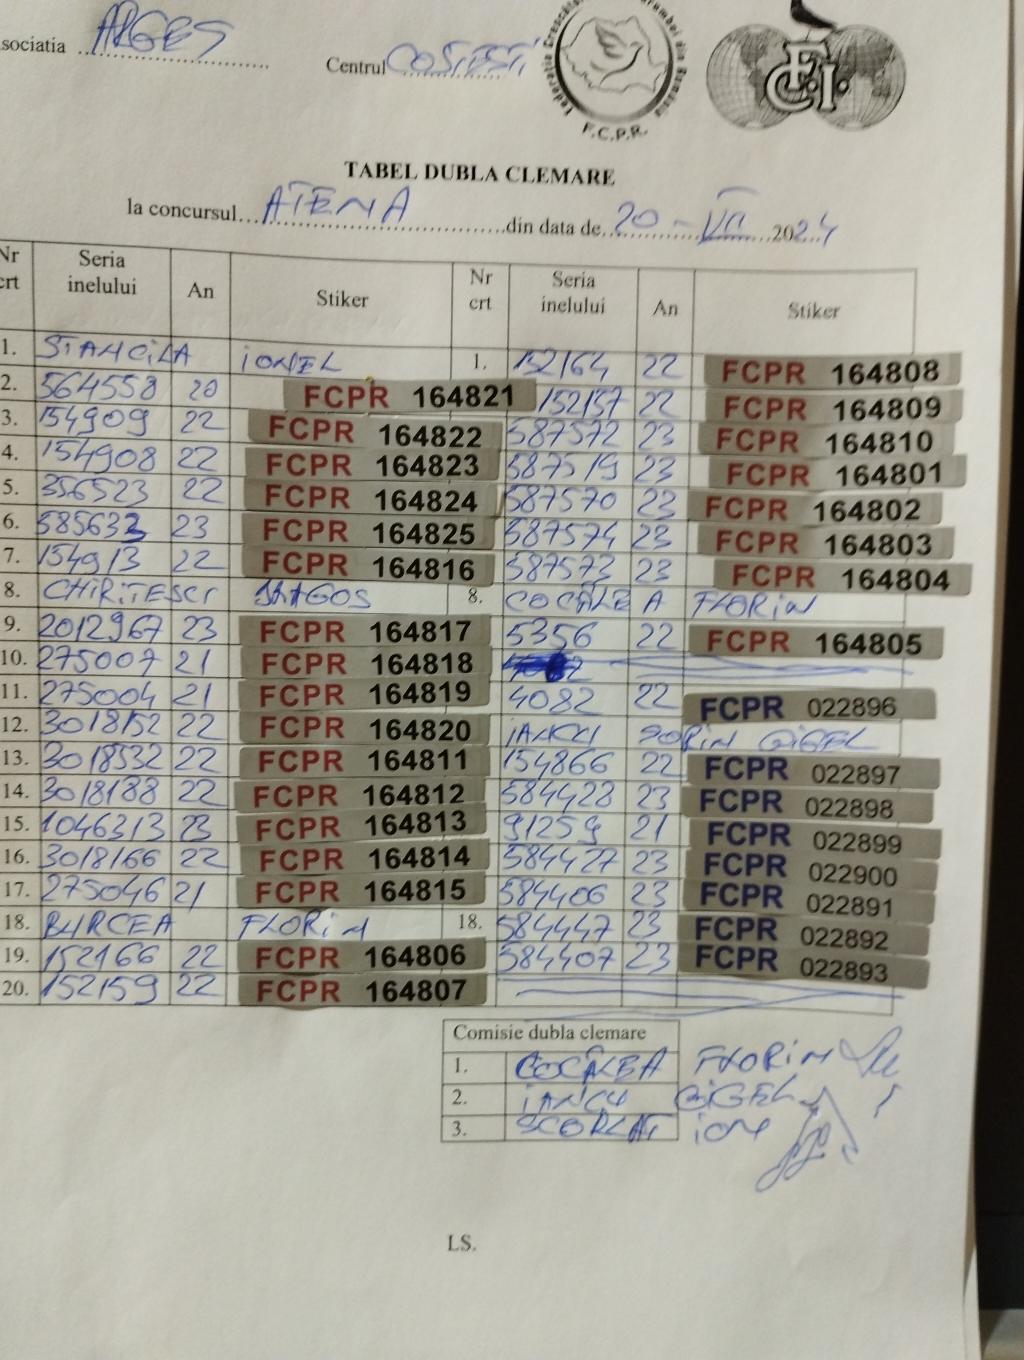 sociatia ARGES
Centrul COSTESTI
F.C.P.R.
F.C.I.
TABEL DUBLA CLEMARE
la concursul... ATENA ...din data de. 20 - VII 2024
Nr crt Seria inelului An Stiker Nr crt Seria inelului An Stiker
1. STANCILA IONEL 1. 152164 22 FCPR 164808
2. 564558 20 FCPR 164821 152157 22 FCPR 164809
3. 154909 22 FCPR 164822 587572 23 FCPR 164810
4. 154908 22 FCPR 164823 587519 23 FCPR 164801
5. 356523 22 FCPR 164824 587570 23 FCPR 164802
6. 585632 23 FCPR 164825 587574 23 FCPR 164803
7. 154913 22 FCPR 164816 587573 23 FCPR 164804
8. CHIRITESCU DRAGOS 8. COCÂLEA FLORIN
9. 2012967 23 FCPR 164817 5356 22 FCPR 164805
10. 275007 21 FCPR 164818
11. 275004 21 FCPR 164819 4082 22 FCPR 022896
12. 3018152 22 FCPR 164820 IANCU SORIN GIGEL
13. 3018532 22 FCPR 164811 154866 22 FCPR 022897
14. 3018188 22 FCPR 164812 584428 23 FCPR 022898
15. 1046313 23 FCPR 164813 91259 21 FCPR 022899
16. 3018166 22 FCPR 164814 584427 23 FCPR 022900
17. 275046 21 FCPR 164815 584406 23 FCPR 022891
18. BURCEA FLORIN 18. 584447 23 FCPR 022892
19. 152166 22 FCPR 164806 584407 23 FCPR 022893
20. 152159 22 FCPR 164807
Comisie dubla clemare
1. COCÂLEA FLORIN
2. IANCU GIGEL
3. SCORLAT ION
LS.